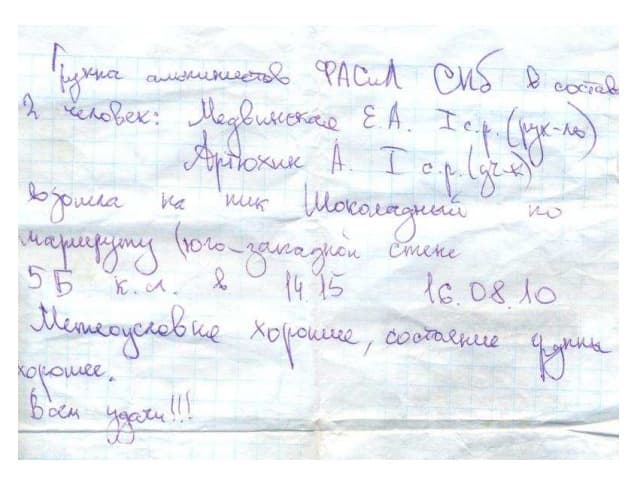 Группа альпинистов ФАСиЛ СПб в составе
2 человек: Медвинская Е.А. I с.р. (рук-ль)
Артюхин А. I с.р. (уч-к)
взошла на пик Шоколадный по
маршруту (юго-западной стене
5Б к.сл. в 14 15 16.08.10
Метеоусловия хорошие, состояние группы
хорошее.
Всем удачи!!!